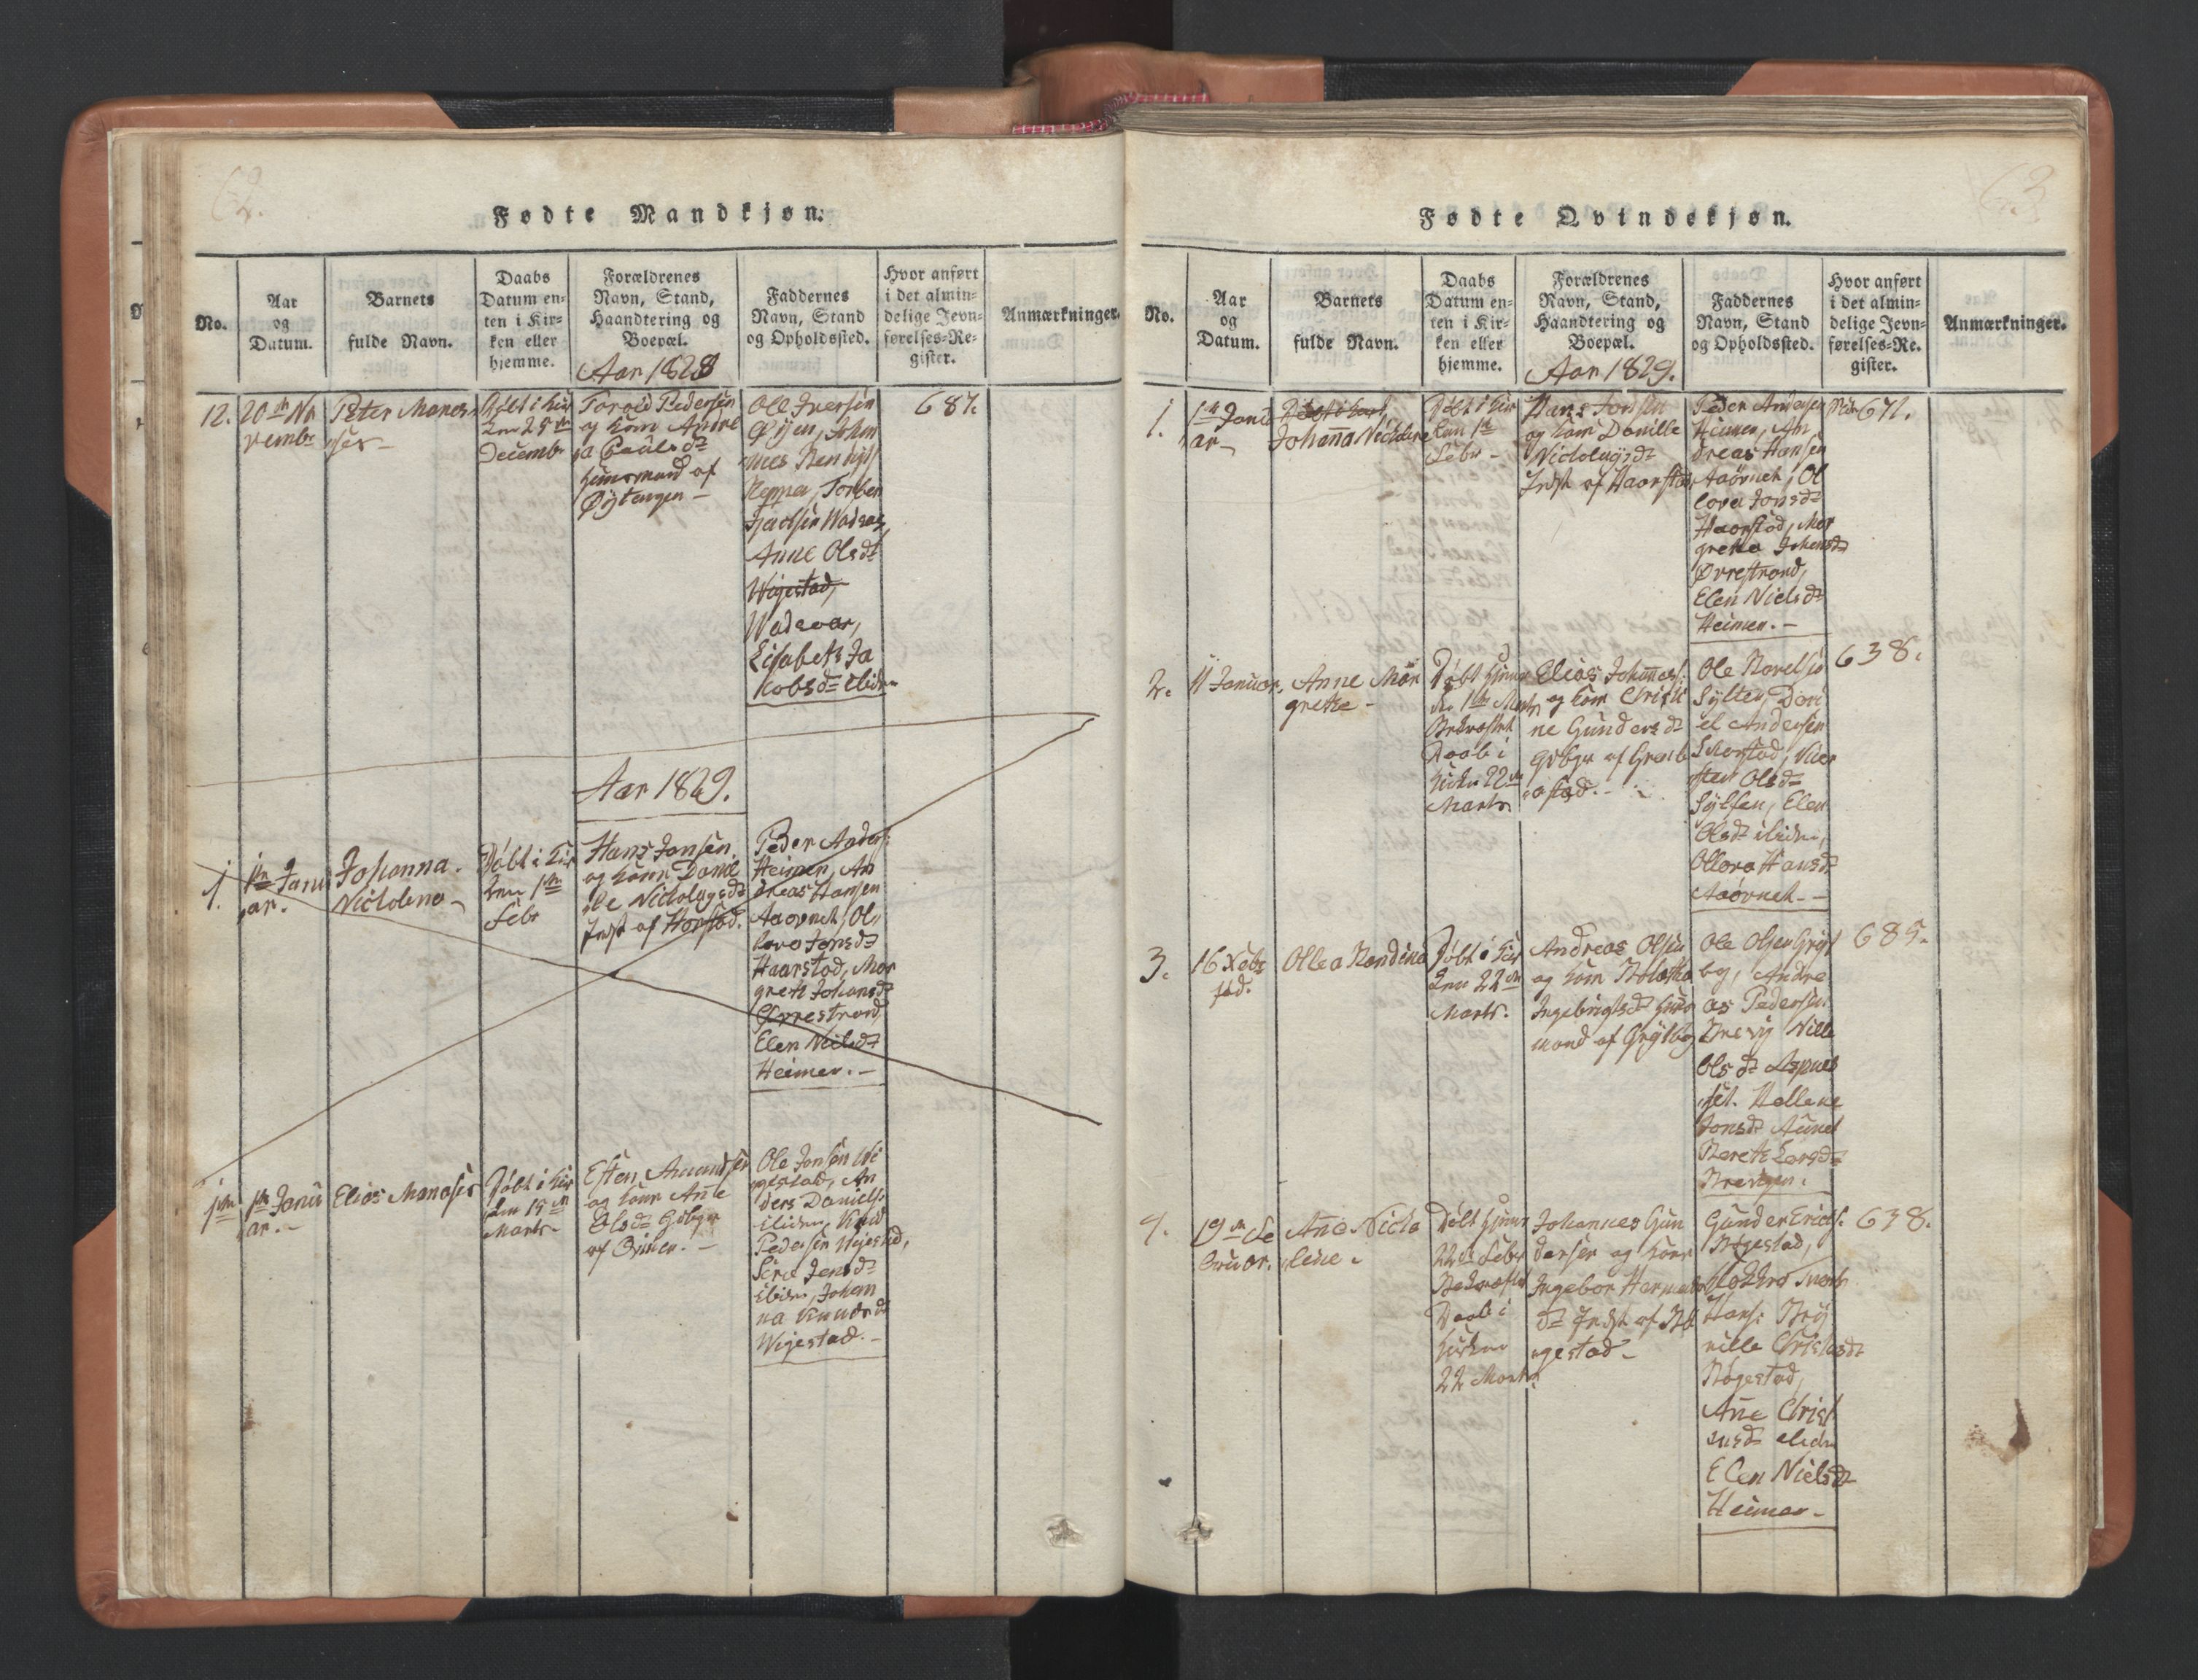 62.
Fødte Mandkjøn.
No.
Aar
og
Datum.
Barnets
fulde Navn.
Daabs
Datum en-
ten i Kir-
ken eller
hjemme.
Forældrenes
Navn, Stand,
Haandtering og
Boepæl.
Faddernes
Navn, Stand
og Opholdssted.
Hvor anført
i det almin-
delige Jevn-
førelses-Re-
gister.
Anmærkninger.
Aar 1828
12.
20de No
vembr
Peter Manas
ses
Døbt i Kir
ken 25de
Decembr
Pedersen
og Kone Andre
a Paulsdt
Huusmand af
Øjtengen
Ole Iversen
Øijen, Johan
nes
Torber
Anne Olsdt
Wigestad,
Elisabeth Ja
kobsdt ibidem
687.
Aar 1829.
1.
1te Janu
ar.
Johanna
Nicholena
Døbt i Kir
ken 1te
Febr
Hans Jonsen
og Kone Danil
le Nicholaysdt
Indst af Horstad.
Peder Anders:
Heimen, An
dreas Hansen
Aaövnet, Ol
lava Jonsdt
Haarstad, Mar
grete Johansdt
Ørrestrand,
Elen Nielsdt
Heimen.
1te
1te Janu
ar.
Elias Manases
Døbt i Kir
ken 15de
Marts
Esten Amundsen
og Kone Anne
Olsdt Gdbgr
af
Ole Jonsen Wi
gestad, An
ders Daniels:
ibidem, Knud
Pedersen Wigestad,
Jensdt
ibidm, Johan
na Knudsdt
Wigestad.
63
Fødte Qvindekjøn.
No.
Aar
og
Datum.
Barnets
fulde Navn.
Daabs
Datum en-
ten i Kir-
ken eller
hjemme.
Forældrenes
Navn, Stand,
Haandtering og
Boepæl.
Faddernes
Navn, Stand
og Opholdssted.
Hvor anført
i det almin-
delige Jevn-
førelses-Re-
gister.
Anmærkninger.
Aar 1829.
1.
1te Janu
ar
Johanna Nicholena
Døbt i Kir
ken 1te
Febr
Hans Jonsen
og Kone Danille
Nicholaysdt
Indst af Haarstad
Peder Andersen
Heimen, An
dreas Hansen
Aaövnet, Ol
lava Jonsdt
Haarstad, Mar
grete Johansdt
Ørrestrand,
Elen Nielsdt
Heimen.
671.
2.
11 Januar.
Anne Mar
grethe
Døbt hjemme
den 1te Marts
Bekræftet
Daab i
Kirken 22de
Marts
Elias Johannes:
og Kone Christi
ne Gundersdt
Gdbgr af Grønb
østad.
Ole
Sylten, Dani
el Andersen
Olsdt
Sylten, Elen
Olsdt ibidm,
Ollava Hansdt
Aaövnet.
638.
3.
16
Ollea Randina
Døbt i Kir
ken 22de
Marts.
Andreas Olsen
og Kone
Ingebrigtsdt Huus
mand af Grytbg
Ole Olsen Gryt
bg, Andre
as Pedersen
Brevig Nille
Olsdt Aspnes
set. Hellene
Jonsdt Aunet
Berethe Larsdt
Brevigen.
685.
4.
19de Fe
bruar.
Ane Nicho
lene.
Døbt hjemme
22de Febr
Bekræftet
Daab i
Kirken
22 Marts
Johannes Gun
dersen og Kone
Ingebor
dt Indst af Bø
gestad
Gunder Erichs:
Bøgestad,
Hans:
nille Christensdt
Bøgestad,
Anne Christ
ensdt ibidm
Elen Nielsdt
Heimen
638.